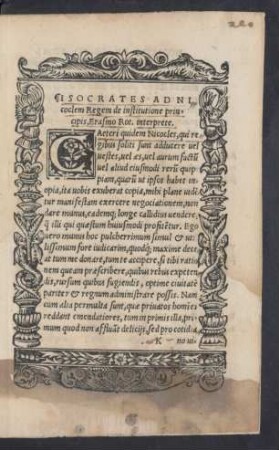 ¶ISOCRATES AD NI
coclem Regem de institutione prin-
cipis, Erasmo Rot. interprete.
CAeteri quidem Nicocles, qui re
gibus soliti sunt adducere uel
uestes, uel æs, uel aurum factũ
uel aliud eiusmodi rerũ quip-
piam, quarũ ut ipsos habet in-
opia, ita uobis exuberat copia, mihi plane uidẽ
tur manifestam exercere negociationem, non
dare munus, eademq; longe callidius uendere,
q̃ illi qui quæstum huiusmodi profitẽtur. Ego
uero munus hoc pulcherrimum simul & uti-
lissimum fore iudicarim, quodq; maxime dece
at tum me donare, tum te accepere, si tibi ratio
nem queam præscribere, quibus rebus expeten
dis, rursum quibus fugiendis, optime ciuitatẽ
pariter & regnum administrare possis. Nam
cum alia permulta sunt, quæ priuatos homines
reddant emendatiores, tum in primis illa, pri-
mum quod non affluũt delicijs, sed pro cotidia
K no ui-